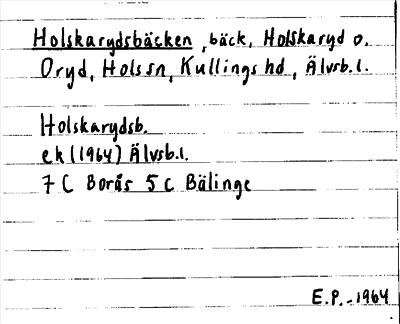 Holskarydsbäcken, bäck, Holskaryd o.
Oryd, Hols sn, Kullings hd, Älvsb. l.
Holskarydsb.
ek (1964) Älvsb. l.
7 C Borås 5 c Bälinge
E.P. - 1964